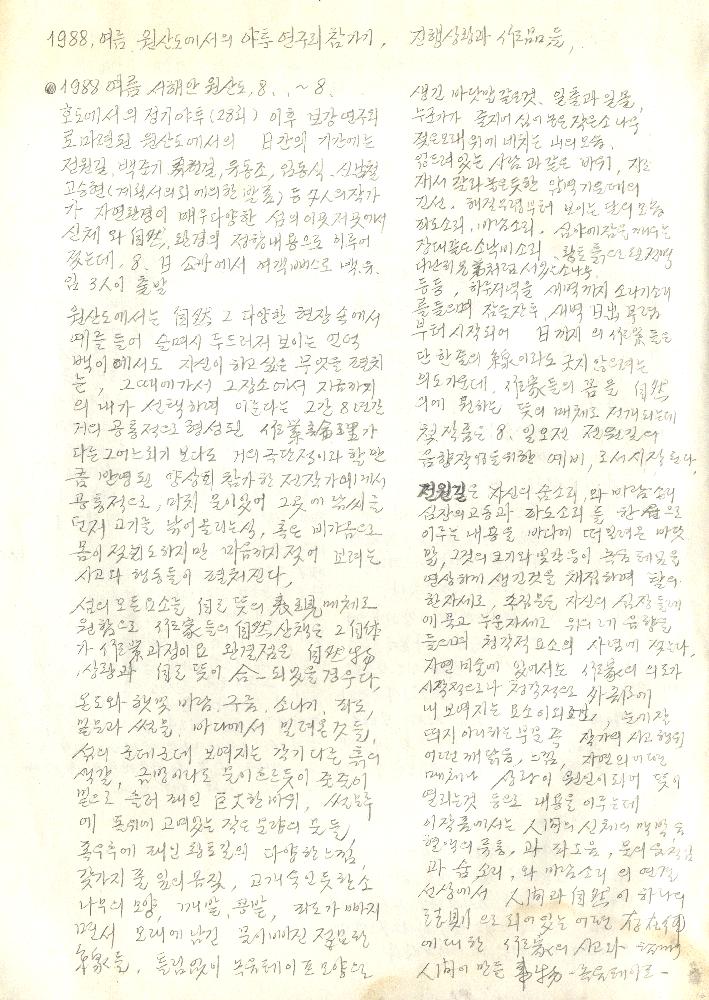 1988. 여름 원산도에서의 야투 연구회 참가기, 진행상황과 作品들,
1988 여름 서해안 원산도, 8. . ~ 8.
호도에서의 정기야투(28회) 이후 보강연구회
로 마련된 원산도에서의 日간의 기간에는
전원길, 백준기, 유동조, 임동식, 신남철
고승현(계획서의외에의한 발표) 등 7人의 작가
가 자연환경이 매우 다양한 섬의 이곳 저곳에서
신체와 自然, 환경의 정황내용으로 이루어
졌는데, 8. 日 에서 여객버스로 백.유.
임 3人이 출발
원산도에서는 自然 그 다양한 현장 속에서
예를 들어 숨며시 두드러져 보이는
에서도 자신이 하고싶은 무엇을 펼치
는, 그때에가서 그장소에서 자유까지
의 내가 선택하며 이룬다는 그간 8년간
거의 공통적으로 형성된 作業論理가
다른 그 어느회기 보다도 거의 극단적이라 할만
큼 반영된 양상회 참가한 전작가에게서
공통적으로, 마치 물이있어 그곳에 낚씨를
던져 고기를 낚어올리는식, 혹은 비가옴으로
몸이 젖 도하지만 마음까지젖어 고려는
사고와 행동들이 펼쳐진다.
섬의 모든요소를 自己 뜻의 表現매체로
원함으로 作家들의 自然산책은 그自体
가 作業과정이요 완결점은 自然物
,상황과 自己 뜻이 合一 되었을경우다.
온도와 햇빛 바람. 구름, 소나기, 파도,
밀물과 썰물, 바다에서 밀려온것들,
섬의 군데군데 보여지는 각기다른 흙의
색깔, 금방이라도 물이흐르듯이 줄줄이
밑으로 흘러 패인 巨大한바위, 썰물후
에 고여있는 작은 분량의 물들,
폭우후에 패인 황토길의 다양한느낌,
갖가지 풀잎의 몸짓, 고개숙인듯한 소
나무의 모양, 깨밭, 콩밭, 파도가 빠지
면서 모래에 남긴 절묘한
線들, 틀림없이 녹음테이프 모양으로
생긴 바닷말같은것. 일출과 일몰,
누군가가 줄지어 심어놓은 작은 소나무
젖은모래위에 비치는 山의 모습.
엎드려있는 사람과같은 바위,
해질무렵부터 보이는 달의 모습
파도소리, 바람소리, 심야에잠을깨우는
장대같은 소낙비소리 황토흙으로된 절벽
등등, 하루저녁을 새벽까지 소나기소리
를들으며 잠을잔후 새벽 日出 무렵
부터시작되어 日까지의 作業들은
단 한줄의 線이라도 긋지 않으려는
의도가운데, 作家들의 몸을 自然
의 원하는 뜻의 매체로 전개되는데
첫작품은 8. 일오전 전원길의
음향작업을위한 예비,로서시작된다.
전원길은 자신의 숨소리,와 바람소리
심장의고동과 파도소리를 한 으로
이루는 내용을 바다에 떠밀려온 바닷
말,그것의 크기와 빛깔등이 녹음테잎을
연상하게 생긴것을 채집하며 활의
한자세로, 수집물을 자신의 심장둘레
에 묶고 누운자세로 위의 음향을
들으며 청각적요소의 사색에 젖는다.
자연미술에 있어서도 作家의 의도가
시각적으로나 청각적으로 外部에
내보여지는 요소이외로도, 눈에잘
띄지아니하는 부분 즉 작가의 사고행위
어떤 깨닮음, 느낌, 자연의 어떤
매체나 상황이 원인이되어 뜻이
열리는것 등으로 내용을 이루는데
이작품에서는 人間의 신체의 맥박
현액의 흐름,과 파도음, 물의움직임
과 숨소리,와 바람소리의 연결
선상에서 人間과 自然이 하나의
으로 되어있는 어떤 存在
에대한 作家의 사고와
人間이 만든 事物 -녹음테이프-